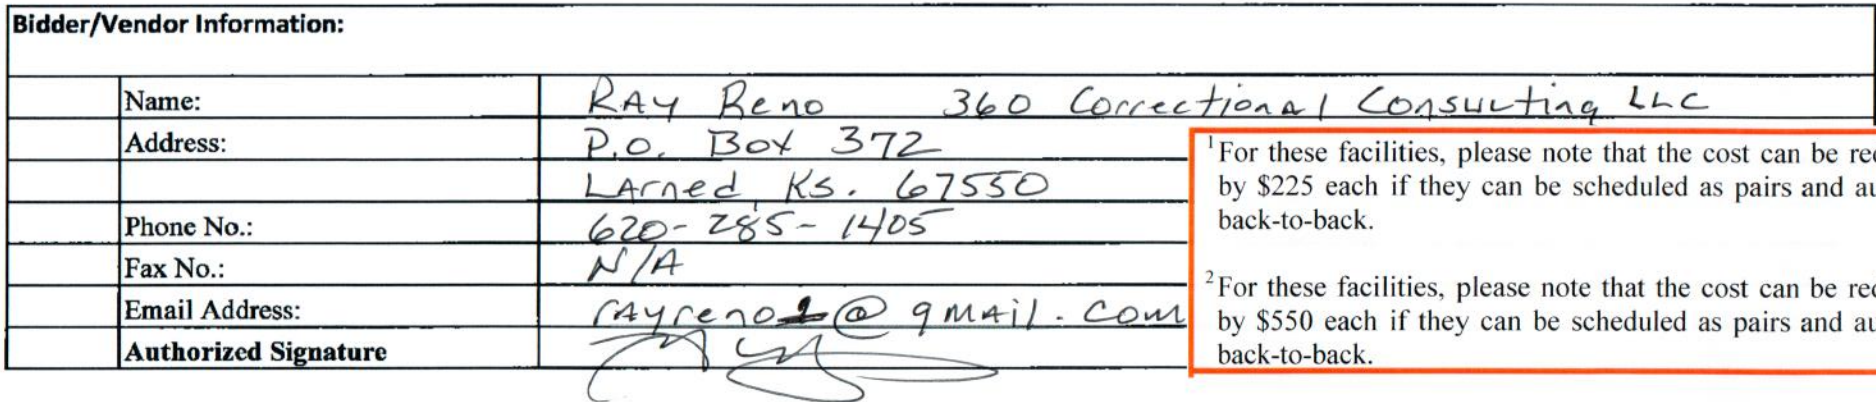 Bidder/Vendor Information:
Name: RAY Reno 360 Correctional Consulting LLC
Address: P.O. Box 372
Larned, KS. 67550
Phone No.: 620-285-1405
Fax No.: N/A
Email Address: rayreno1@gmail.com
Authorized Signature
1For these facilities, please note that the cost can be
by $225 each if they can be scheduled as pairs and
back-to-back.
2For these facilities, please note that the cost can be
by $550 each if they can be scheduled as pairs and
back-to-back.